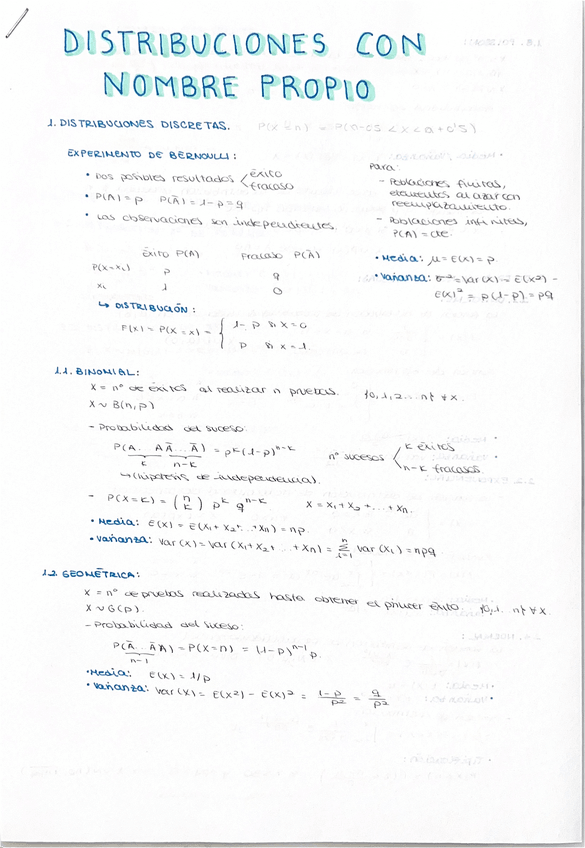 DISTRIBUCIONES CON
NOMBRE PROPIO
1. DISTRIBUCIONES DISCRETAS.
EXPERIMENTO DE BERNOULLI:
• Dos posibles resultados < éxito
fracaso
• P(A) = p P(Ā) = 1-p = q
• Las observaciones son independientes.
Para:
- Poblaciones finitas,
elementos al azar con
reemplazamiento.
- Poblaciones infinitas,
P(A) = cte.
Éxito P(A) Fracaso P(Ā)
P(X=xᵢ) p q
xᵢ 1 0
• Media: μ = E(X) = p.
• Varianza: σ² = Var(X) = E(X²) -
E(X)² = p(1-p) = pq
↳ DISTRIBUCIÓN:
F(x) = P(X=x) = { 1-p si x=0
p si x=1.
1.1. BINOMIAL:
X = nº de éxitos al realizar n pruebas. {0,1,2...n} ∀ X.
X ~ B(n,p)
- Probabilidad del suceso:
P(A... A Ā... Ā) = pᵏ(1-p)ⁿ⁻ᵏ
k n-k
nº sucesos < k éxitos
n-k fracasos.
↳ (hipótesis de independencia).
- P(X=k) = (n k) pᵏ qⁿ⁻ᵏ X = X₁ + X₂ + ... + Xn.
• Media: E(X) = E(X₁ + X₂ + ... + Xn) = np.
• Varianza: Var(X) = Var(X₁ + X₂ + ... + Xn) = Σⁿᵢ₌₁ Var(Xᵢ) = npq
1.2. GEOMÉTRICA:
X = nº de pruebas realizadas hasta obtener el primer éxito. {0,1...n} ∀ X
X ~ G(p).
- Probabilidad del suceso:
P(Ā... Ā A) = P(X=n) = (1-p)ⁿ⁻¹ p.
n-1
• Media: E(X) = 1/p
• Varianza: Var(X) = E(X²) - E(X)² = (1-p)/p² = q/p²